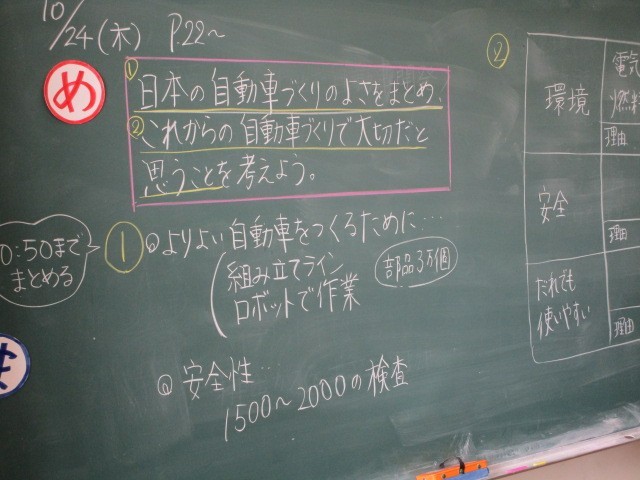 10/24(木) P22~
め
①日本の自動車づくりのよさをまとめ、
②これからの自動車づくりで大切だと
思うことを考えよう。
0:50まで
まとめる
① よりよい自動車をつくるために…
組み立てライン
ロボットで作業
部品3万個
安全性…
1500~2000の検査
ま
②
環境
電気
燃料
理由
安全
理由
だれでも
使いやすい
理由